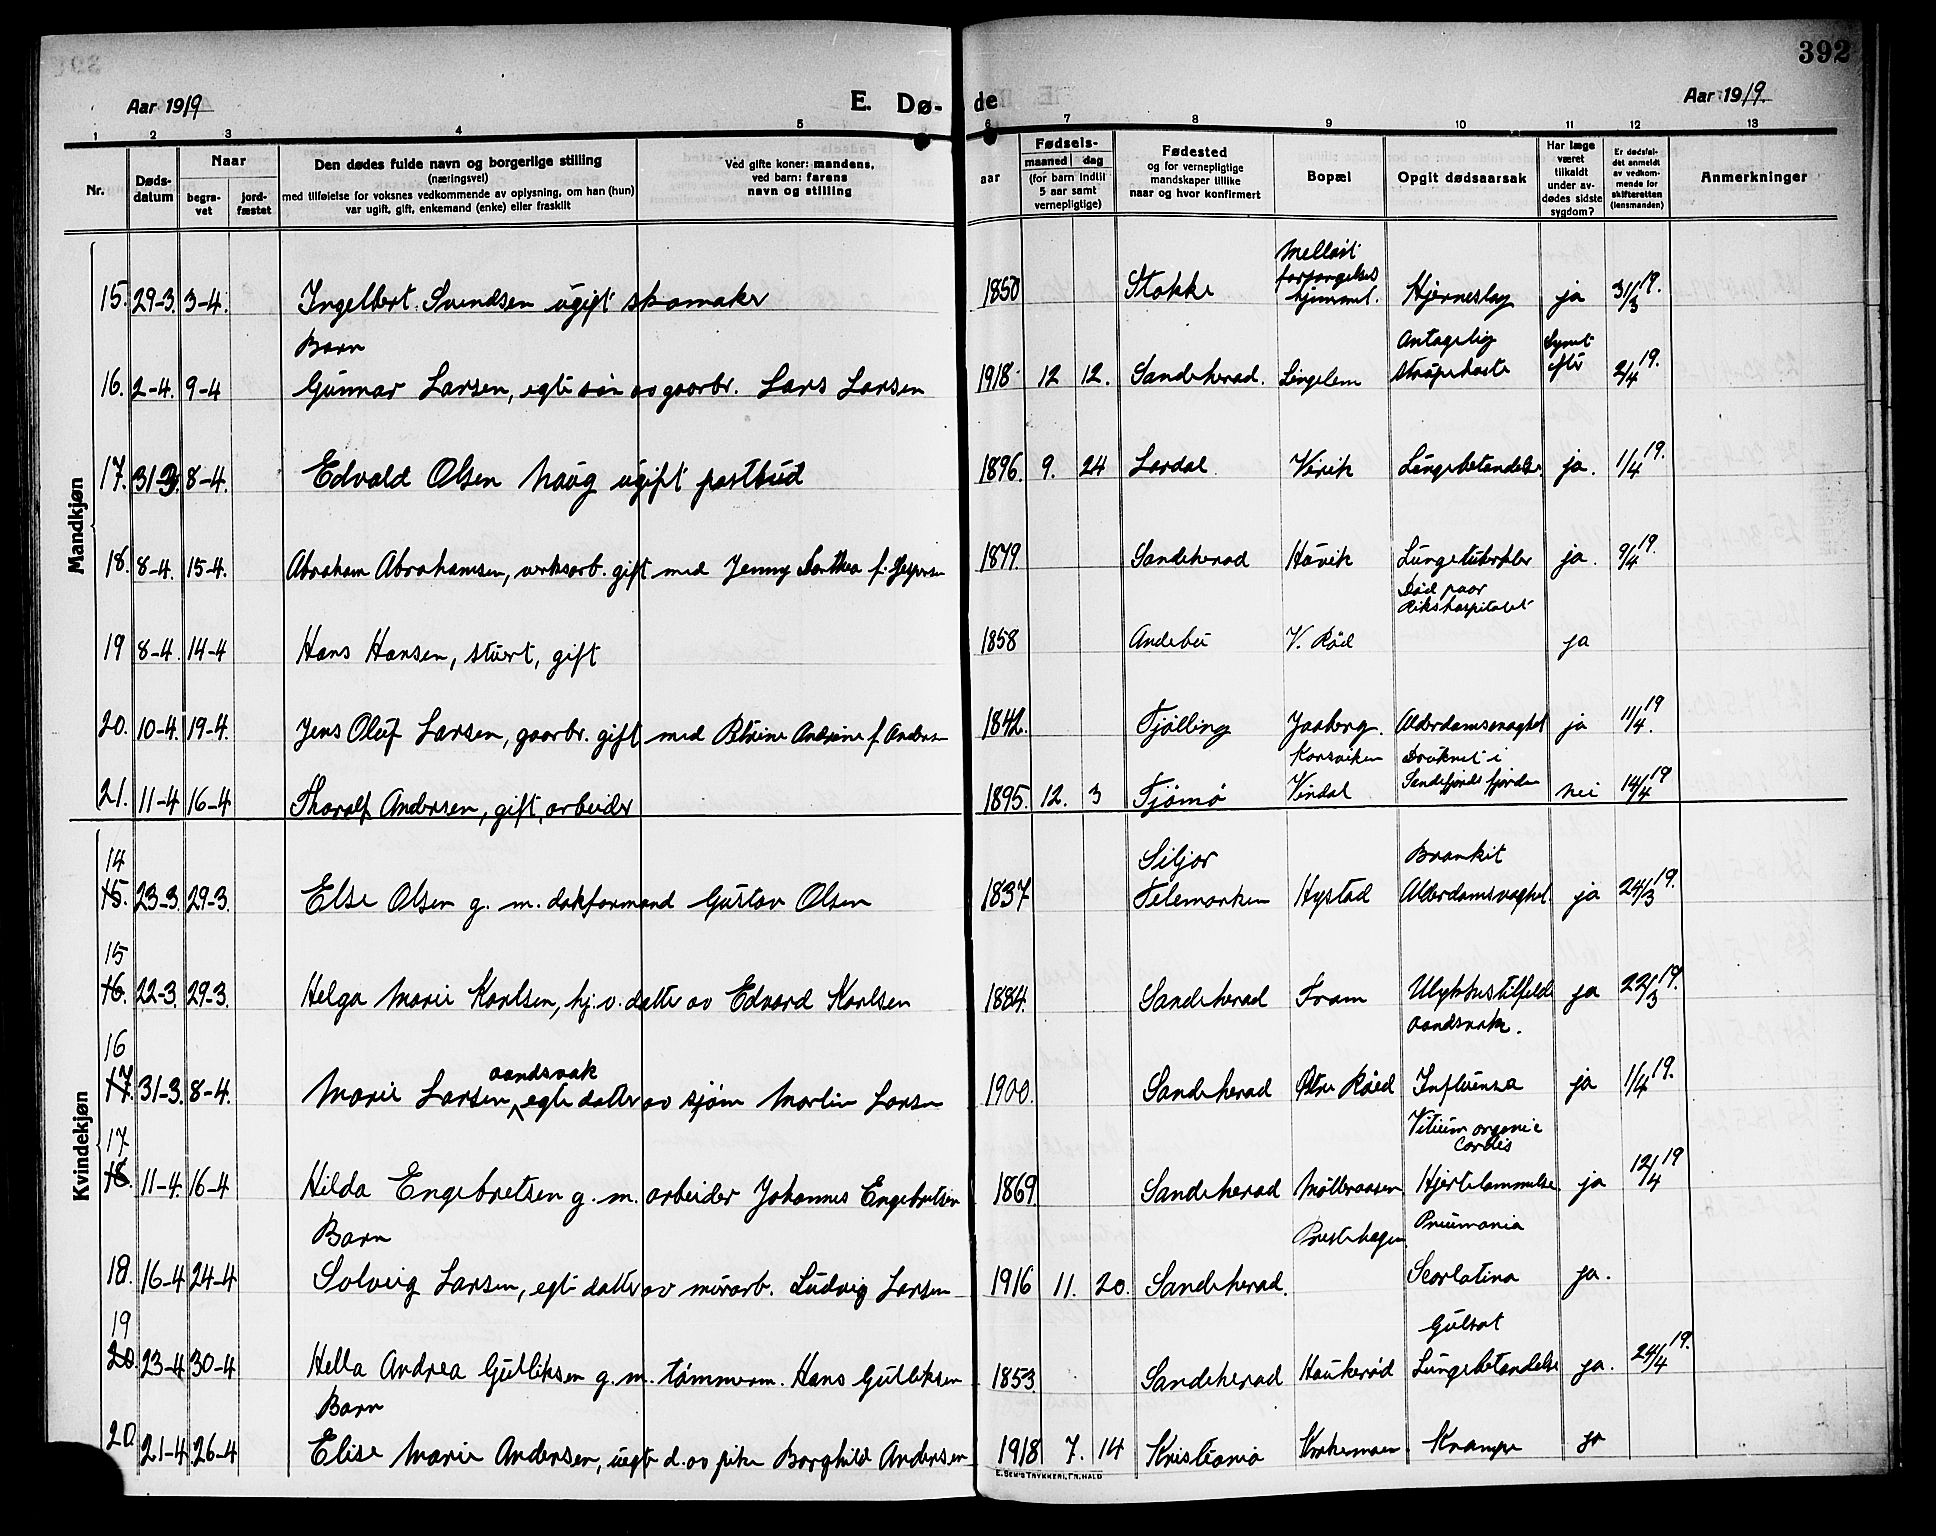 392
Aar 1919
E. Dø-
de
Aar 1919.
1 2 3 4 5 6 7 8 9 10 11 12 13
Nr.
Døds-
datum
Naar
begra-
vet
jord-
fæstet
Den dødes fulde navn og borgerlige stilling
(næringsvei)
med tilføielse for voksnes vedkommende av oplysning, om han (hun)
var ugift, gift, enkemand (enke) eller fraskilt
Ved gifte koner: mandens,
ved barn: farens
navn og stilling
aar
Fødsels-
maaned dag
(for barn indtil
5 aar samt
vernepligtige)
Fødested
og for vernepligtige
mandskaper tillike
naar og hvor konfirmert
Bopæl
Opgit dødsaarsak
Har læge
været
tilkaldt
under av-
dødes sidste
sygdom?
Er dødsfal-
det anmeldt
av vedkom-
mende for
skifteretten
(lensmanden)
Anmerkninger
Mandkjøn
15. 29-3. 3-4. Ingelbert Svendsen ugift skomaker 1850 Stokke Melløst forsørgelses hjemmet. Hjerneslag ja 31/3 19.
Barn
16. 2-4. 9-4 Gunnar Larsen, egte søn av gaarbr. Lars Larsen 1918 12 12. Sandeherad. Lingelem Antagelig strupehoste Synet efter 2/4 19.
17. 31-3. 8-4. Edvald Olsen Haug ugift postbud 1896. 9. 24 Lardal Virik Lungebetændelse ja. 1/4 19.
18. 8-4. 15-4. Abraham Abrahamsen, verksarb. gift med Jenny Dorthea f. Jespersen 1879. Sandeherad Haavik Lungetuberkler ja. 9/4 19.
Død paa
Rikshospitalet
19 8-4. 14-4 Hans Hansen, stuert, gift 1858 Andebu V. Rød ja
20. 10-4. 19-4. Jens Oluf Larsen, gaarbr. gift med Petrine Andrine f. Anders 1842. Tjølling Jaaberg. Alderdomssvaghet ja 11/4 19.
21. 11-4 16-4 Tharalf Andersen, gift, arbeider 1895. 12. 3 Tjømø Korsviken Vindal Druknet i Sandefjords fjorden nei 14/4 19
Kvindekjøn
14
15. 23-3. 29-3. Else Olsen g. m. dokformand Gustav Olsen 1837 Siljor Telemarken Hystad Bronkit Alderdomsvaghet ja 24/3 19.
15
16. 22-3. 29-3. Helga Marie Karlsen, hj. v. datter av Edvard Karlsen 1884. Sandeherad Fram Ulykkestilfelde ja 22/3 19.
16 aandsvak.
aandsvak
17. 31-3. 8-4. Marie Larsen, egte datter av sjøm Martin Larsen 1900. Sandeherad Østre Røed Influensa ja 1/4 19.
17
18. 11-4. 16-4 Hilda Engebretsen g. m. arbeider Johannes Engebretsen 1869. Sandeherad Møllraasen Vitium organice Cordis Hjertelammelse. ja 12/4 19
Barn
18. 16-4 24-4 Solveig Larsen, egte datter av murarb. Ludvig Larsen 1916 11. 20. Sandeherad. Prestehagen Pneumonia Scarlatina ja.
19
20. 23-4 30-4 Hella Andrea Gulliksen g. m. tømmerm. Hans Gulliksen 1853. Sandeherad Haukerød Gulsot Lungebetændelse ja. 24/4 19.
Barn
20 21-4 26-4 Elise Marie Andersen, uegte d. av pike Borghild Andersen 1918 7. 14 Kristiania Krampe ja
E. SEM'S TRYKKERI, FR.HALD